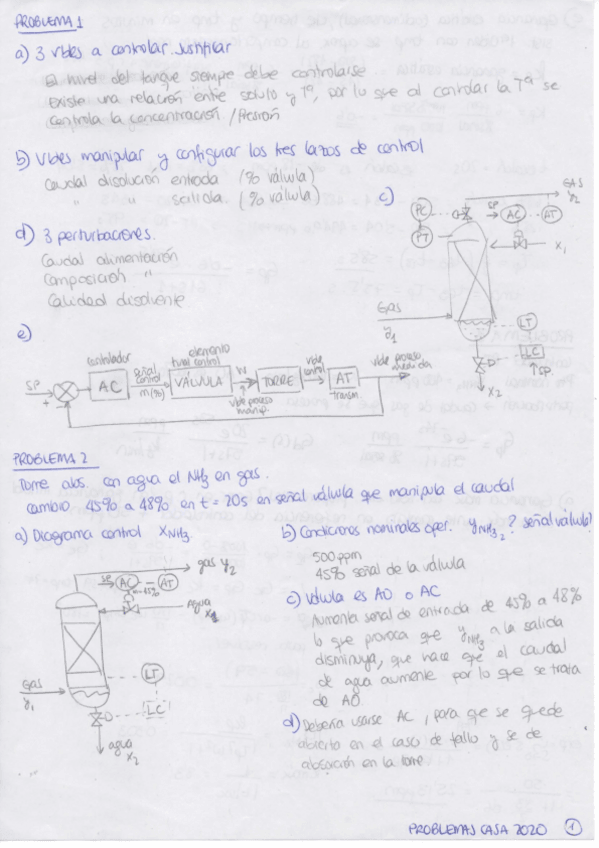 PROBLEMA 1
a) 3 vbles a controlar. Justificar
El nivel del tanque siempre debe controlarse
Existe una relación entre soluto y Tª, por lo que al controlar la Tª se
controla la concentración / Presión
b) Vbles manipular y configurar los tres lazos de control
Caudal disolución entrada (% válvula)
" " salida (% válvula)
c)
GAS
y2
PC
SP
AC
AT
PT
x1
Gas
y1
LT
LC
SP.
x2
d) 3 perturbaciones.
Caudal alimentación
Composición "
Calidad disolvente
e)
SP
+
-
controlador
AC
señal control
m(%)
elemento final control
VÁLVULA
w
vble proceso manip.
TORRE
vble control
AT
transm.
vble proceso medida
PROBLEMA 2
Torre abs. con agua el NH3 en gas.
cambio 45% a 48% en t = 20s en señal válvula que manipula el caudal
a) Diagrama control XNH3.
gas y2
SP
AC
AT
m=45%
Agua
x1
Gas
y1
LT
LC
agua
x2
b) Condiciones nominales oper. yNH3 2? señal válvula?
500 ppm
45% señal de la válvula
c) Válvula es AO o AC
Aumenta señal de entrada de 45% a 48%
lo que provoca que yNH3 a la salida
disminuya, que hace que el caudal
de agua aumente por lo que se trata
de AO.
d) Debería usarse AC, para que se quede
abierta en el caso de fallo y se de
absorción en la torre
PROBLEMAS CASA 2020 1